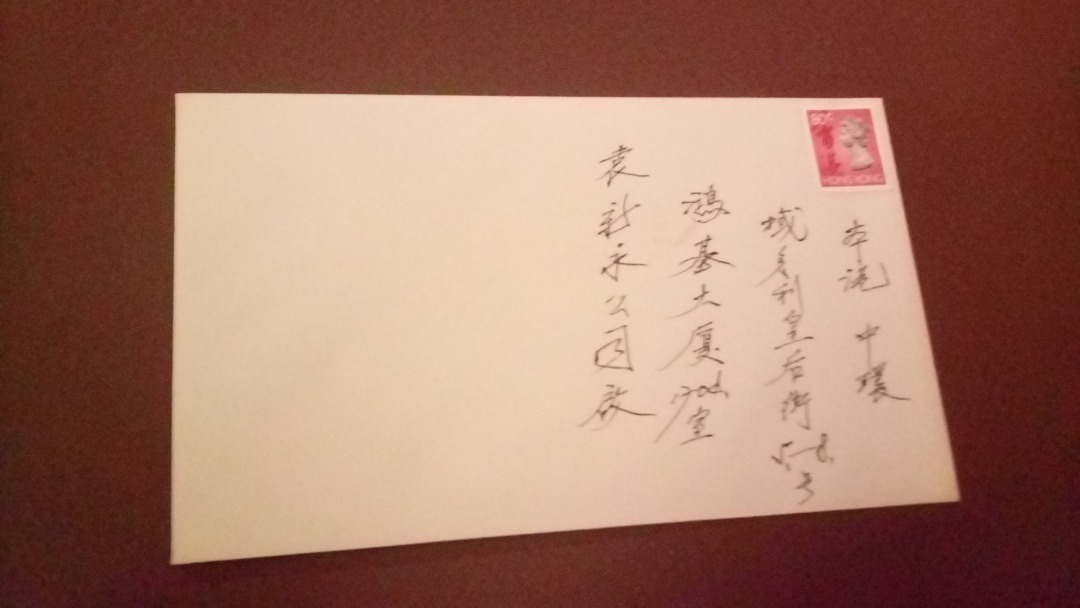 80¢
香港
HONG KONG
本港 中環
域多利皇后街
5-8号
鴻基大厦
室
袁新永公司啟